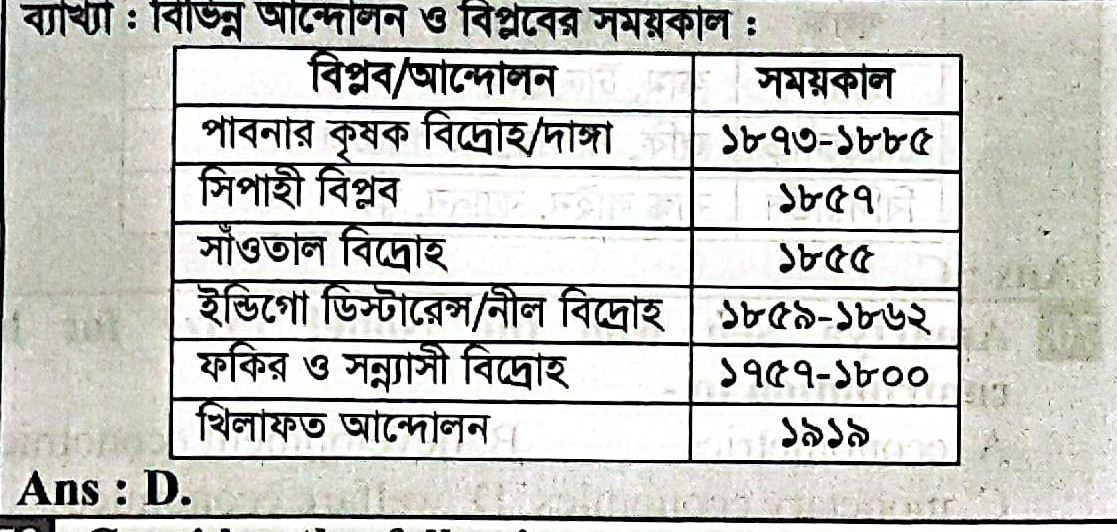 ব্যাখ্যা : বিভিন্ন আন্দোলন ও বিপ্লবের সময়কাল :
বিপ্লব/আন্দোলন সময়কাল
পাবনার কৃষক বিদ্রোহ/দাঙ্গা ১৮৭৩-১৮৮৫
সিপাহী বিপ্লব ১৮৫৭
সাঁওতাল বিদ্রোহ ১৮৫৫
ইন্ডিগো ডিস্টারেন্স/নীল বিদ্রোহ ১৮৫৯-১৮৬২
ফকির ও সন্ন্যাসী বিদ্রোহ ১৭৫৭-১৮০০
খিলাফত আন্দোলন ১৯১৯
Ans : D.